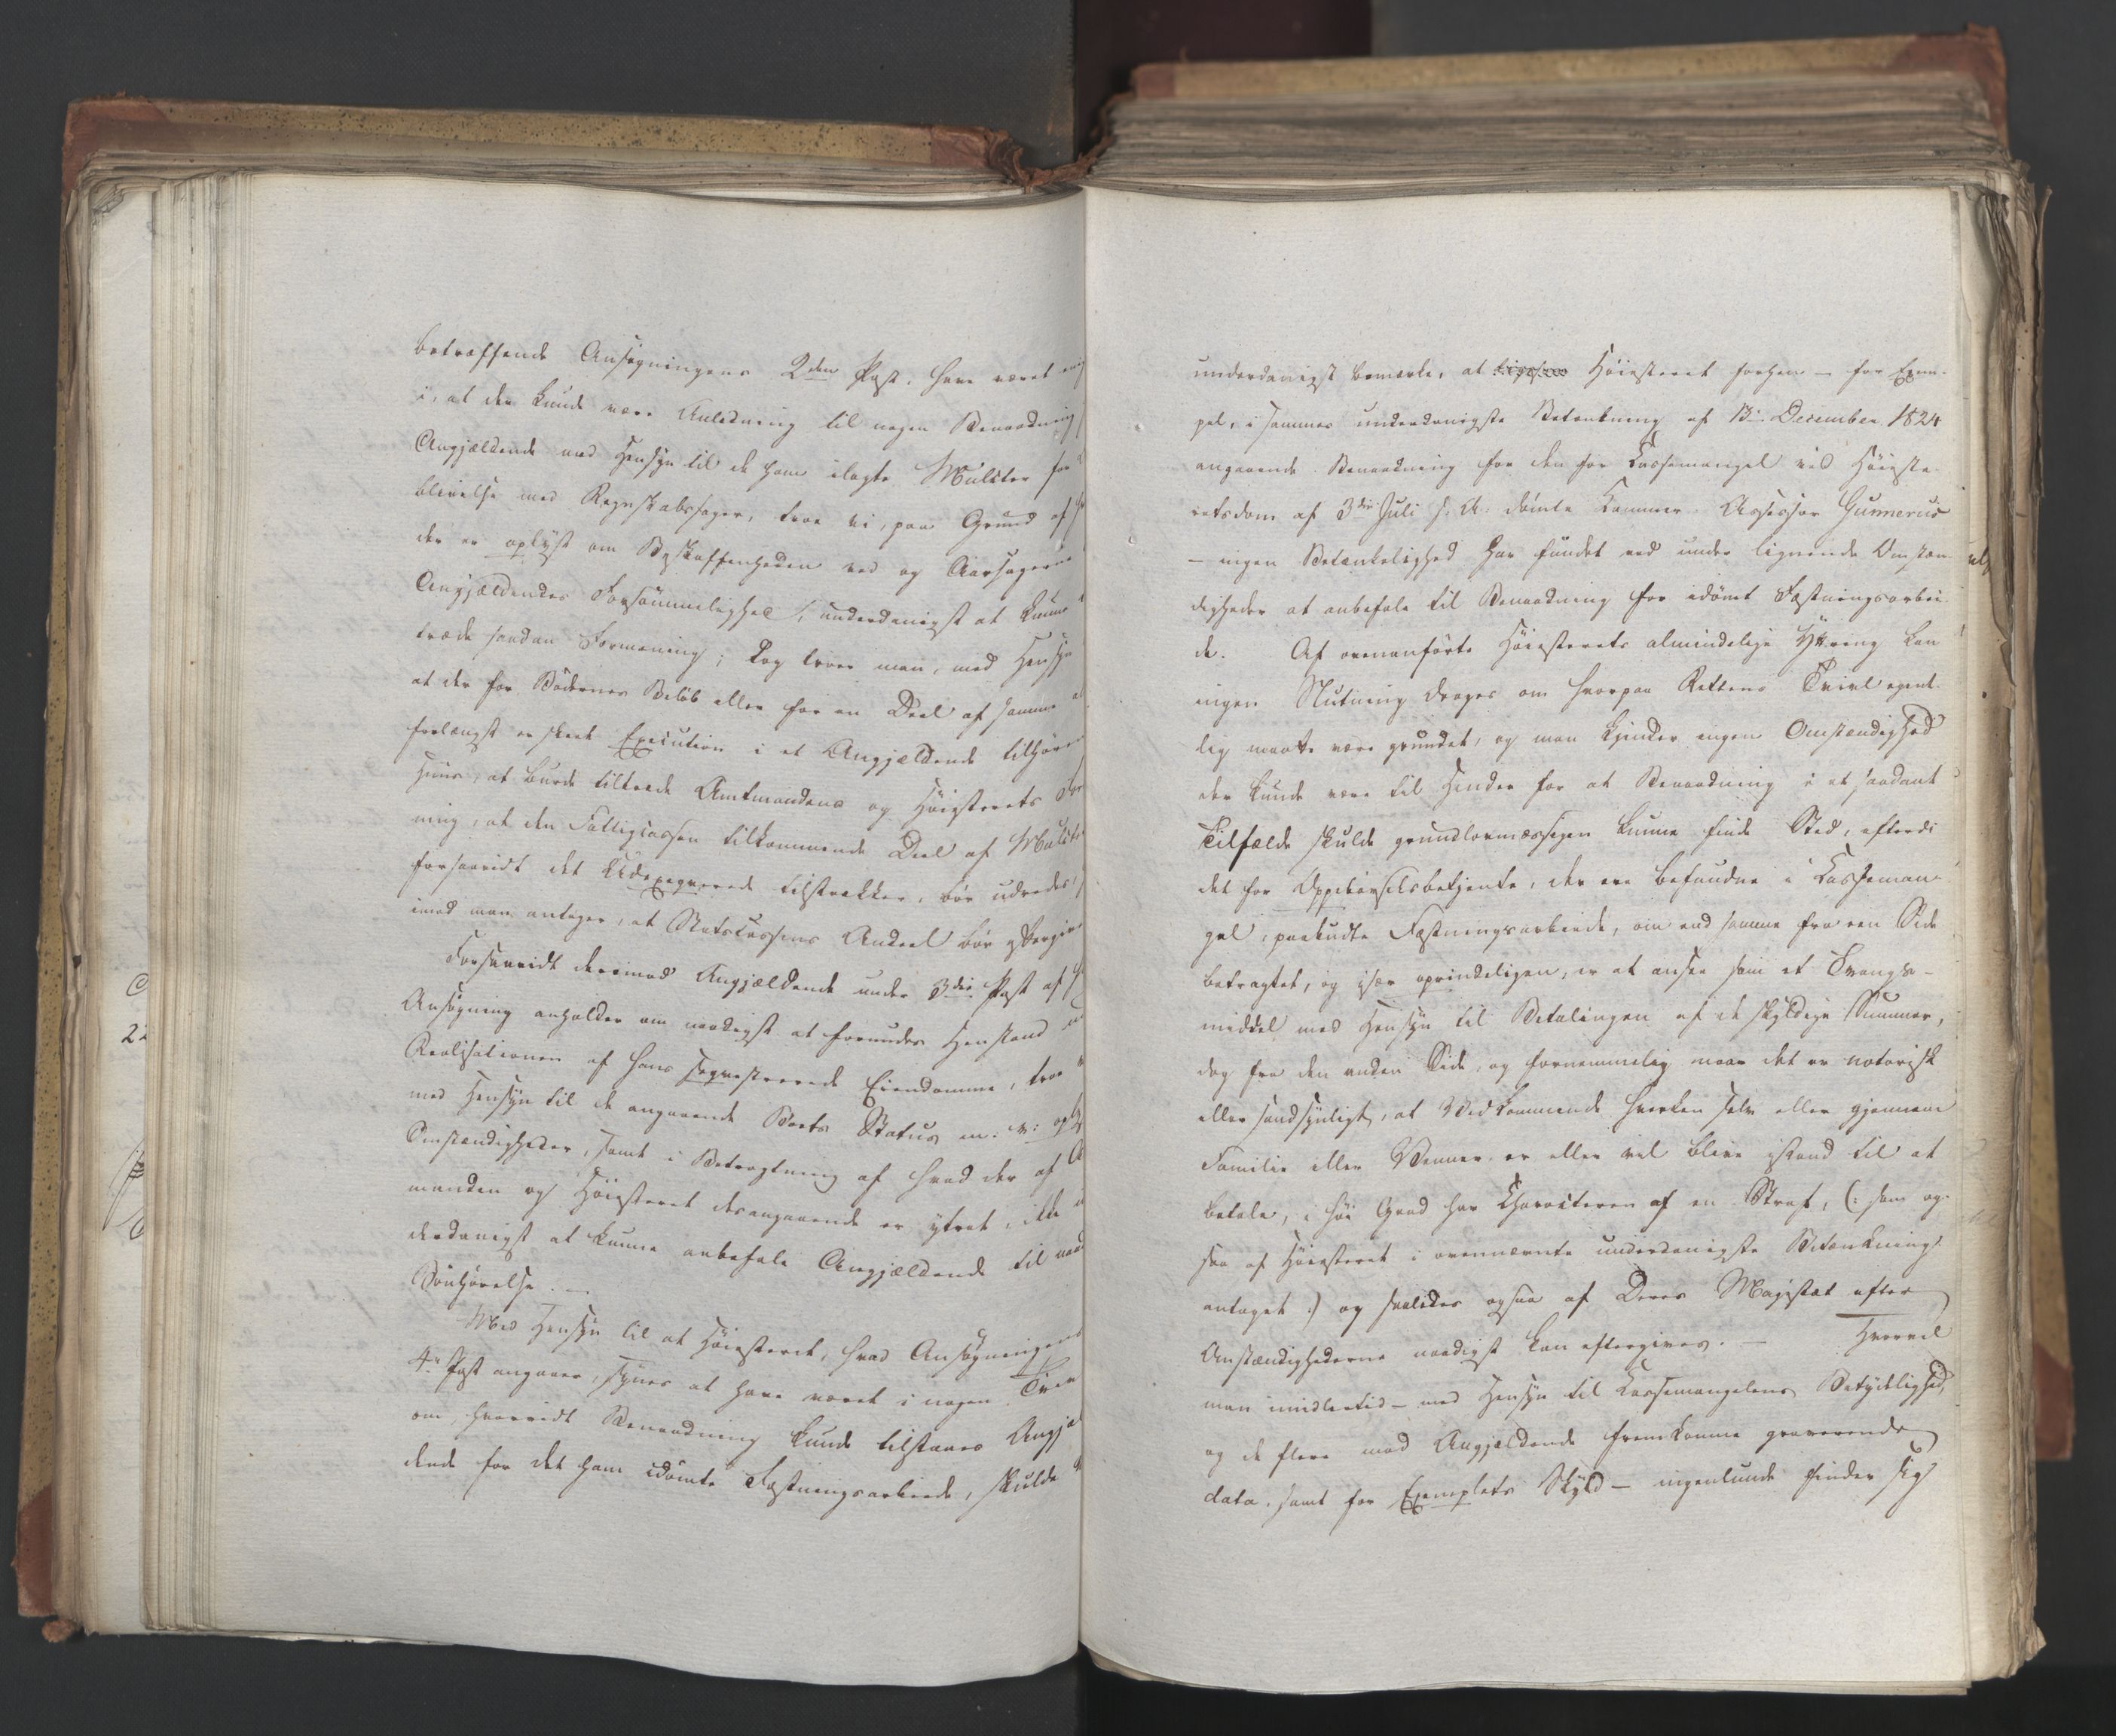 betræffende Ansøgningens 2den Post, have været
i, at der kunde være Anledning til nogen Benaadning
Angjældende med Hensyn til de ham ilagte Mulcter for
blivelse med Regnskabssager, troe vi, paa Grund af
der er oplyst om Beskaffenheden ved og Aarsagerne
Angjældendes Forsømmelighed, underdanigst at kunne
træde saadan Formening; dog troer man, med Hensyn
at der for Bødernes Beløb eller for en Deel af samme
forlængst er skeet Execution i et Angjældende tilhøren
Huus, at burde tiltræde Amtmandens og Høiesterets For
ning, at den Fattigcassen tilkommende Deel af Mulct
forsaavidt det Udexeqverede tilstrækker, bør udredes,
imod man antager, at Statskassens Andeel bør
Forsaavidt derimod Angjældende under 3die Post af
Ansøgning anholder om naadigst at forundes Henstand
Realisationen af hans seqvestrerede Eiendomme, troe
med Hensyn til de angaaende Boets Status m: v: opl
Omstændigheder, samt i Betragtning af hvad der af A
manden og Høiesteret desangaaende er yttret, ikke
derdanigst at kunne anbefale Angjældende til naad
Bønhørelse. —
Med Hensyn til at Høiesteret, hvad Ansøgningens
4de Post angaaer, synes at have været i nogen Tvivl
om, hvorvidt Benaadning kunde tilstaaes Angjæl
dende for det ham idømte Fæstningsarbeide, skulde
underdanigst bemærke, at Høiesteret forhen — for Exem-
pel, i sammes underdanigste Betænkning af 13de December 1824
angaaende Benaadning for den for Kassemangel ved Høieste-
retsdom af 3die Juli s. A. dømte Kammer-Assessor Gunnerus
— ingen Betænkelighed har fundet ved under lignende Omstæn
digheder at anbefale til Benaadning for idømt Fæstningsarbei
de. Af ovenanførte Høiesterets almindelige Yttring kan
ingen Slutning drages om hvorpaa Rettens Tvivl egent
lig maatte være grundet, og man kjender ingen Omstændighed
der kunde være til Hinder for at Benaadning i et saadant
Tilfælde skulde grundlovmæssigen kunne finde Sted, efterdi
det for Oppebørselsbetjente, der ere befundne i Kasseman-
gel, paabudte Fæstningsarbeide, om end samme fra een Side
betragtet, og især oprindeligen, er at ansee som et Tvangs-
middel med Hensyn til Betalingen af de skyldige Summer,
dog fra den anden Side, og fornemmelig naar det er notorisk
eller sandsynligt, at Vedkommende hverken selv eller gjennem
Familie eller Venner er eller vil blive istand til at
betale, i høi Grad har Characteren af en Straf, (: som og-
saa af Høiesteret i ovennævnte underdanigste Betænkning
antaget :) og saaledes ogsaa af Deres Majestæt efter
Omstændighederne naadigst kan eftergives. — Hvorvel
man imidlertid — med Hensyn til Kassemangelens Betydlighed,
og de flere mod Angjældende fremkomne graverende
data, samt for Exemplets Skyld — ingenlunde finder sig